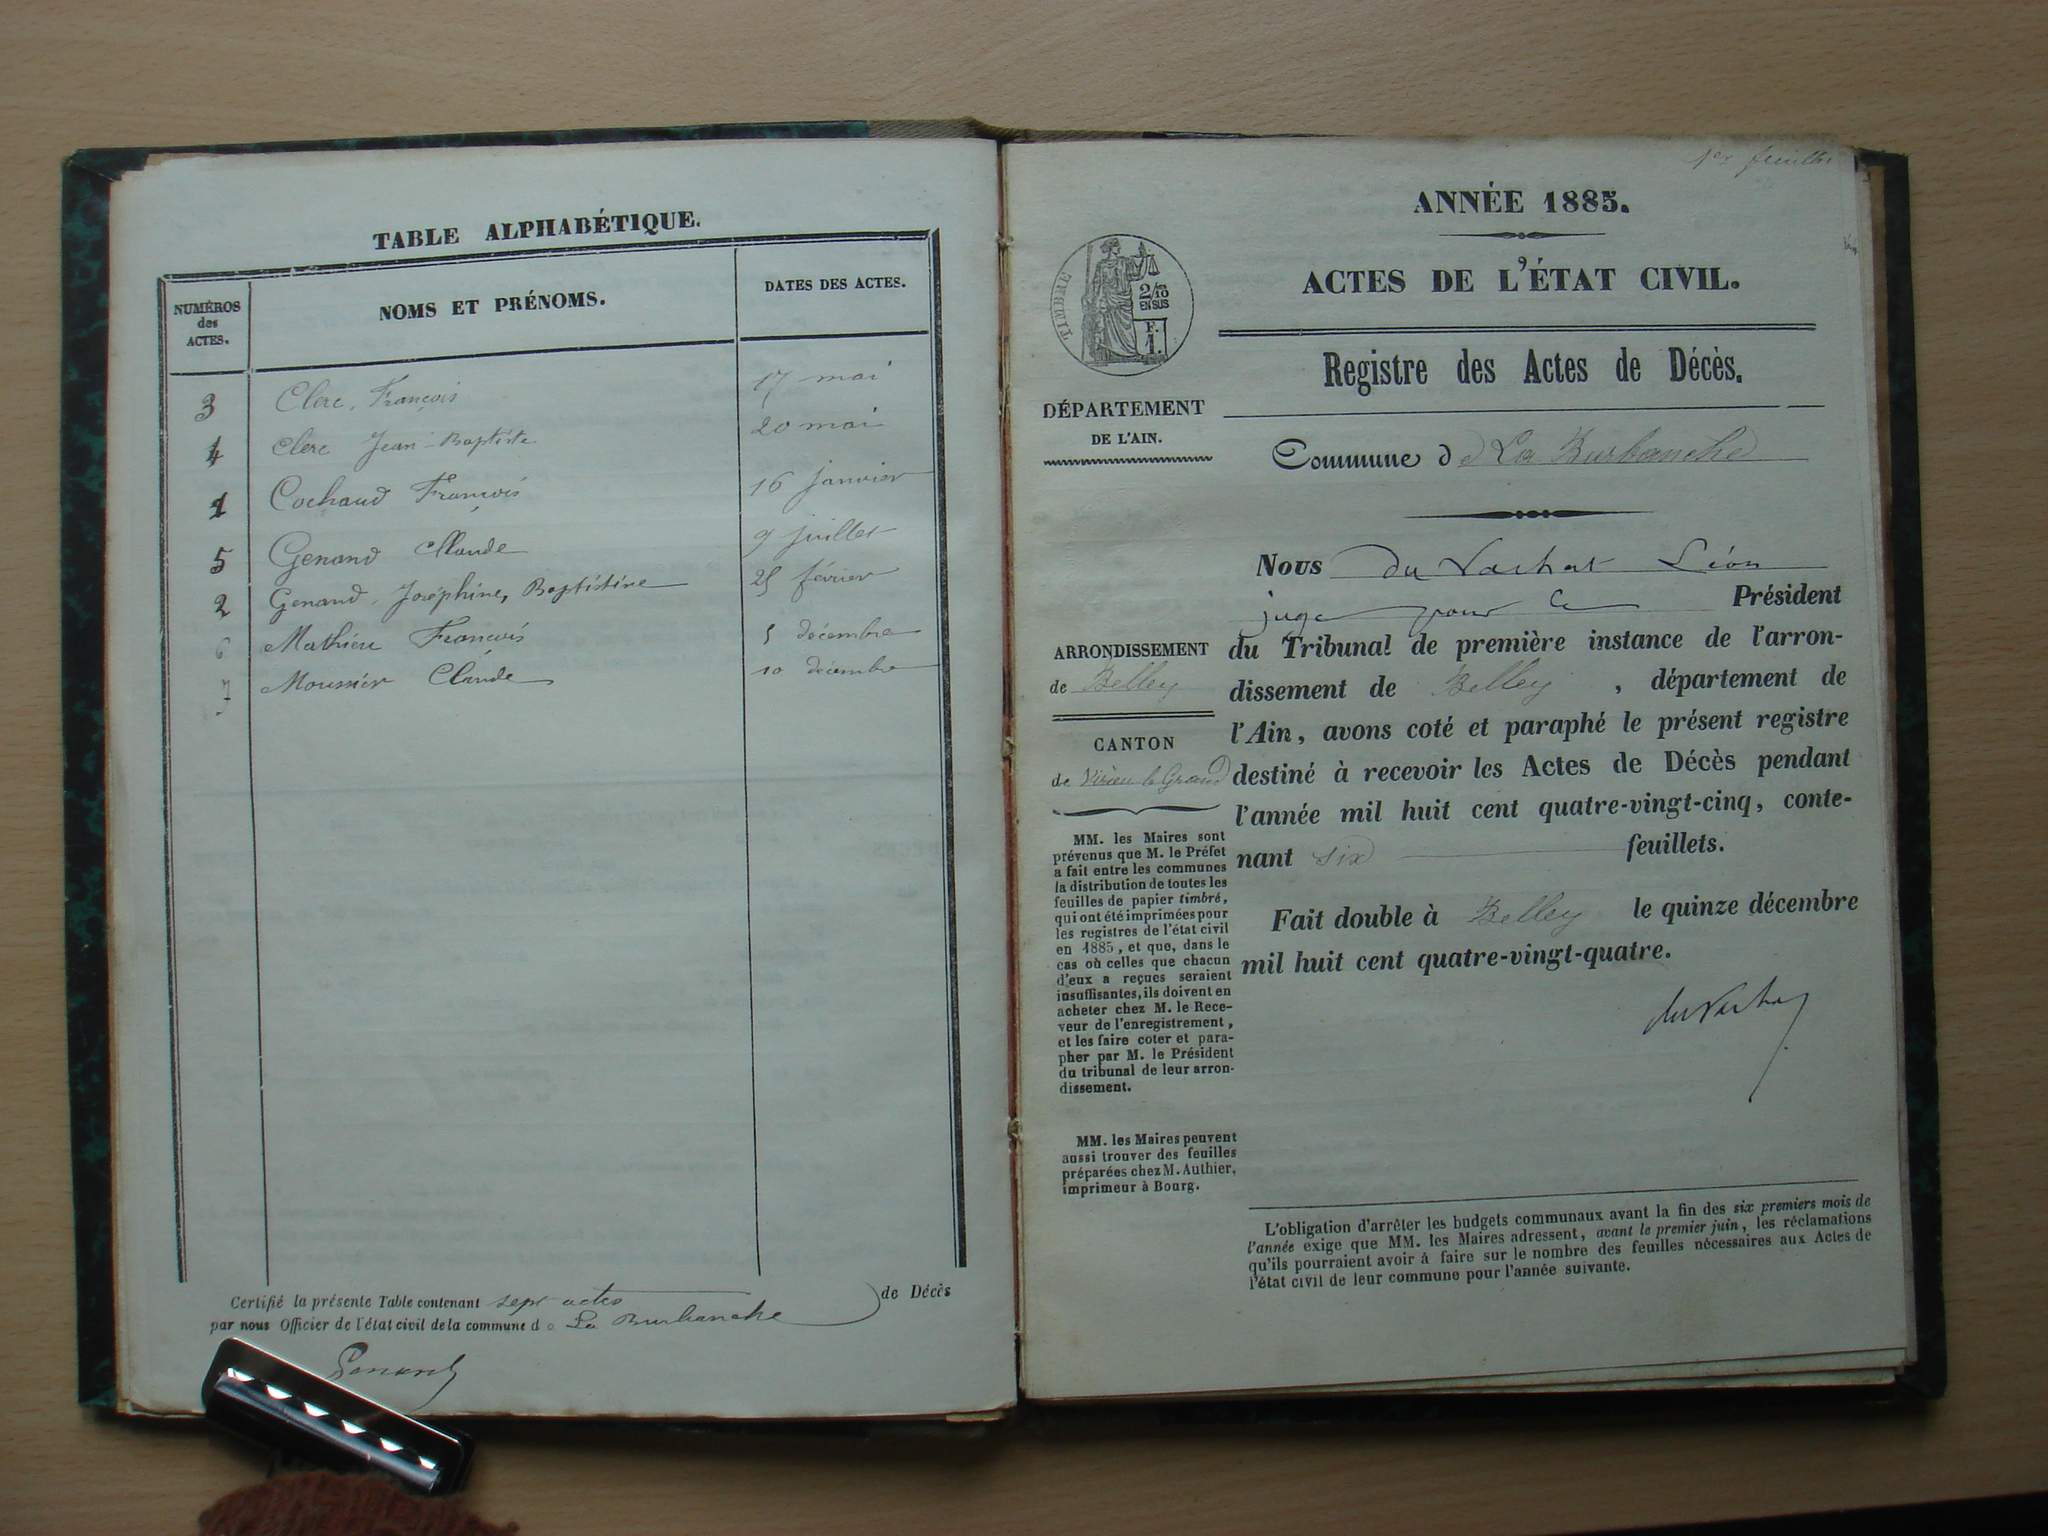 TABLE ALPHABÉTIQUE.
NUMÉROS des ACTES. NOMS ET PRÉNOMS. DATES DES ACTES.
3 Clerc, François 17 mai
4 Clerc Jean-Baptiste 20 mai
1 Cochaud François 16 janvier
5 Genand Claude 9 juillet
2 Genand, Joséphine, Baptistine 25 février
6 Mathieu François 5 décembre
7 Mounier Claude 10 décembre
Certifié la présente Table contenant sept actes de Décès
par nous Officier de l'état civil de la commune de La Burbanche
Genand
1er feuillet
ANNÉE 1885.
ACTES DE L'ÉTAT CIVIL.
TIMBRE
2/10
EN SUS
F.
1.
Registre des Actes de Décès.
DÉPARTEMENT
DE L'AIN.
Commune de La Burbanche
Nous du Lachat Léon
juge pour le Président
du Tribunal de première instance de l'arron-
dissement de Belley, département de
l'Ain, avons coté et paraphé le présent registre
destiné à recevoir les Actes de Décès pendant
l'année mil huit cent quatre-vingt-cinq, conte-
nant six feuillets.
Fait double à Belley le quinze décembre
mil huit cent quatre-vingt-quatre.
ARRONDISSEMENT
de Belley
CANTON
de Virieu le Grand
MM. les Maires sont
prévenus que M. le Préfet
a fait entre les communes
la distribution de toutes les
feuilles de papier timbré,
qui ont été imprimées pour
les registres de l'état civil
en 1885, et que, dans le
cas où celles que chacun
d'eux a reçues seraient
insuffisantes, ils doivent en
acheter chez M. le Rece-
veur de l'enregistrement,
et les faire coter et para-
pher par M. le Président
du tribunal de leur arron-
dissement.
MM. les Maires peuvent
aussi trouver des feuilles
préparées chez M. Authier,
imprimeur à Bourg.
L'obligation d'arrêter les budgets communaux avant la fin des six premiers mois de
l'année exige que MM. les Maires adressent, avant le premier juin, les réclamations
qu'ils pourraient avoir à faire sur le nombre des feuilles nécessaires aux Actes de
l'état civil de leur commune pour l'année suivante.